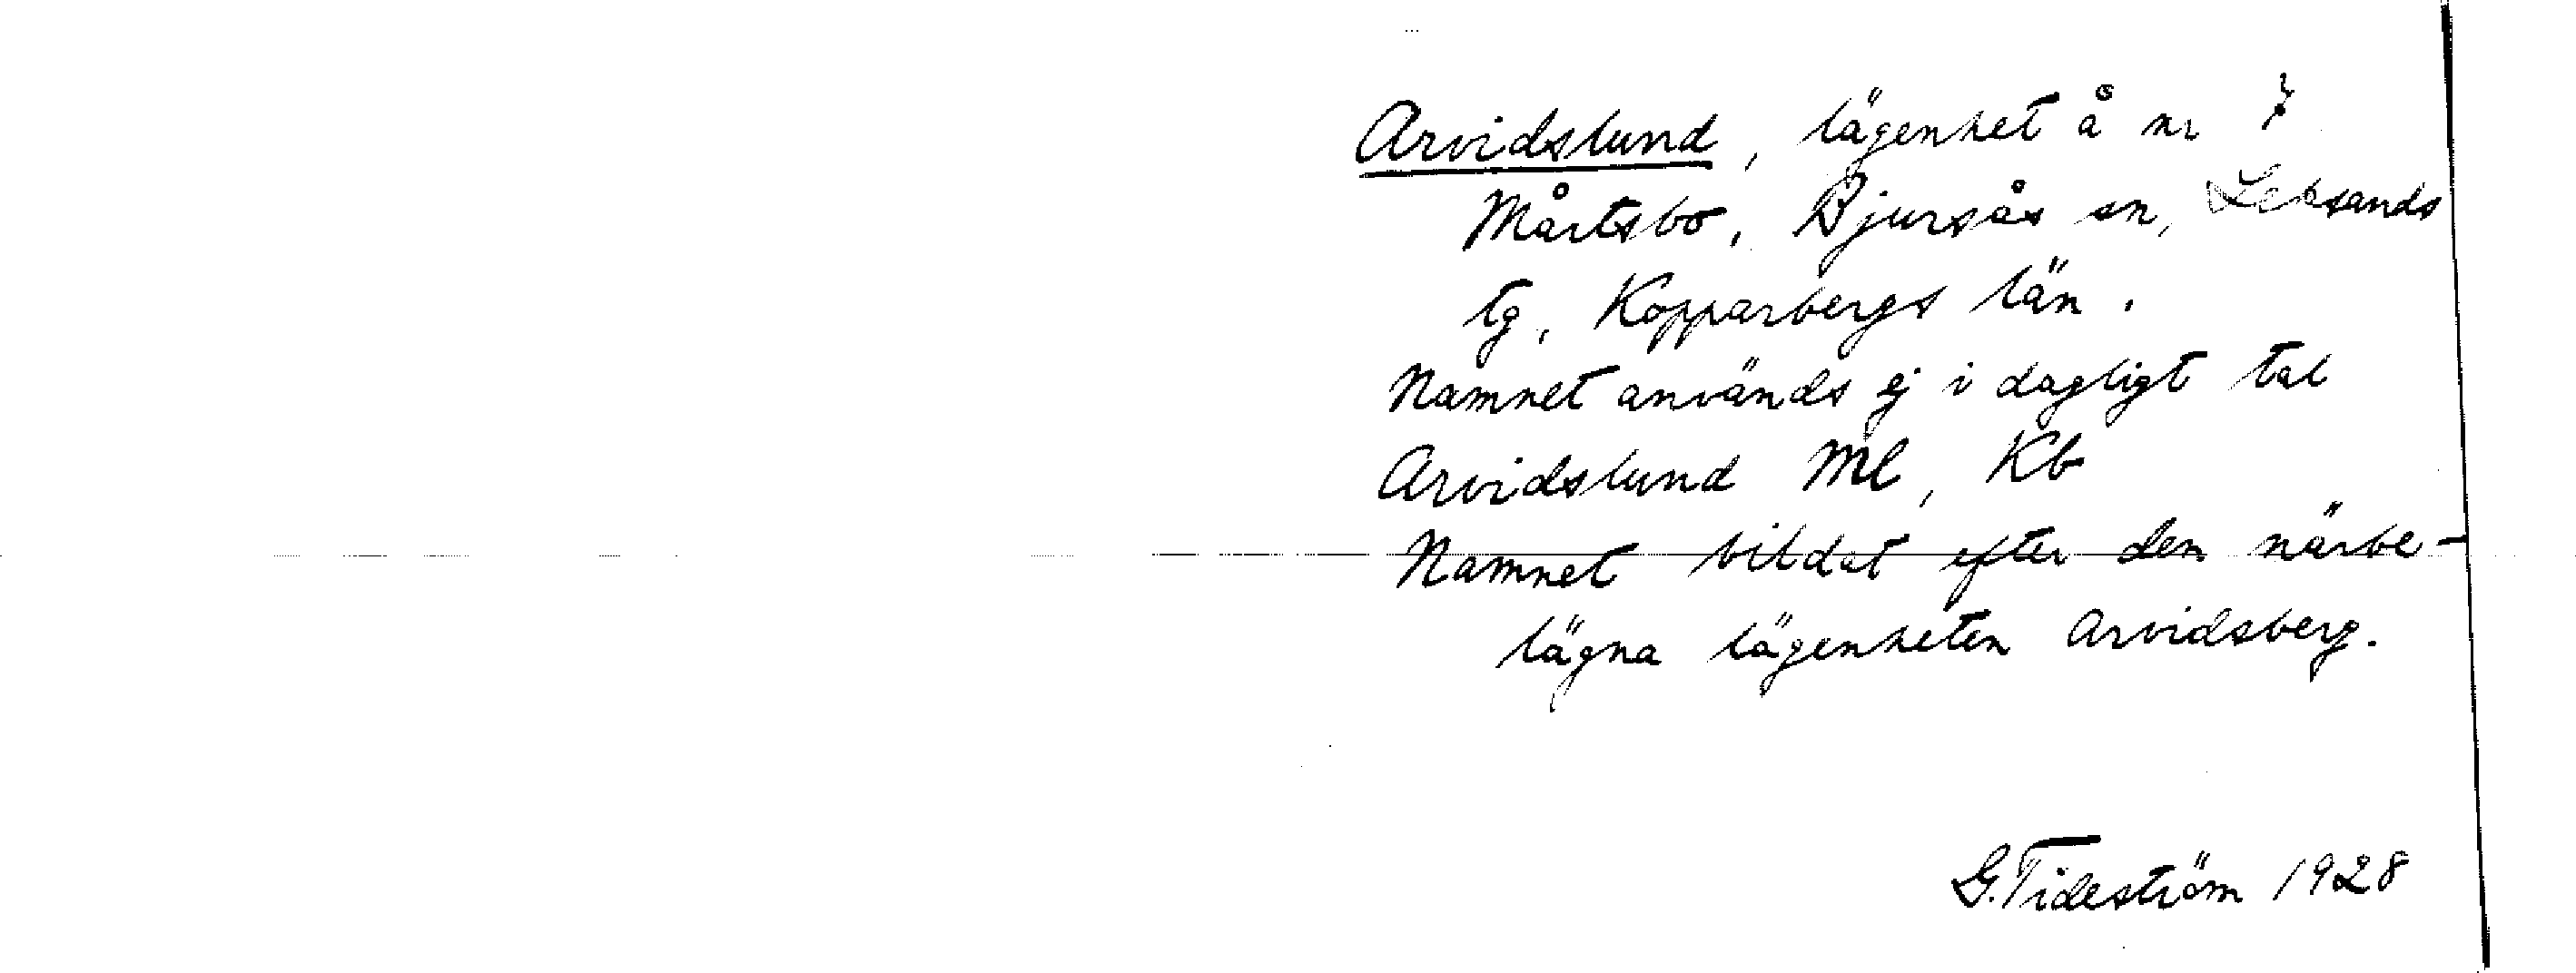 Arvidslund, lägenhet å nr 7
Mårtsbo, Bjursås sn, Leksands
tg, Kopparbergs län.
Namnet används ej i dagligt tal
Arvidslund Ml, Kb
Namnet bildat efter den närbe-
lägna lägenheten Arvidsberg.
G. Tideström 1928